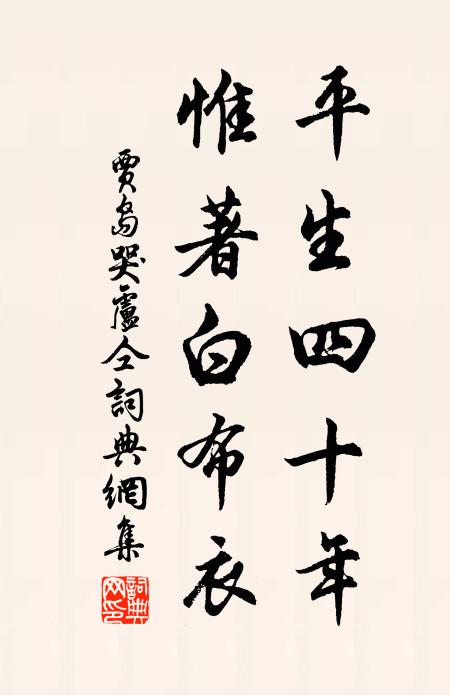 平生四十年
惟著白布衣
賈島哭盧仝詞典網集
詞典網印